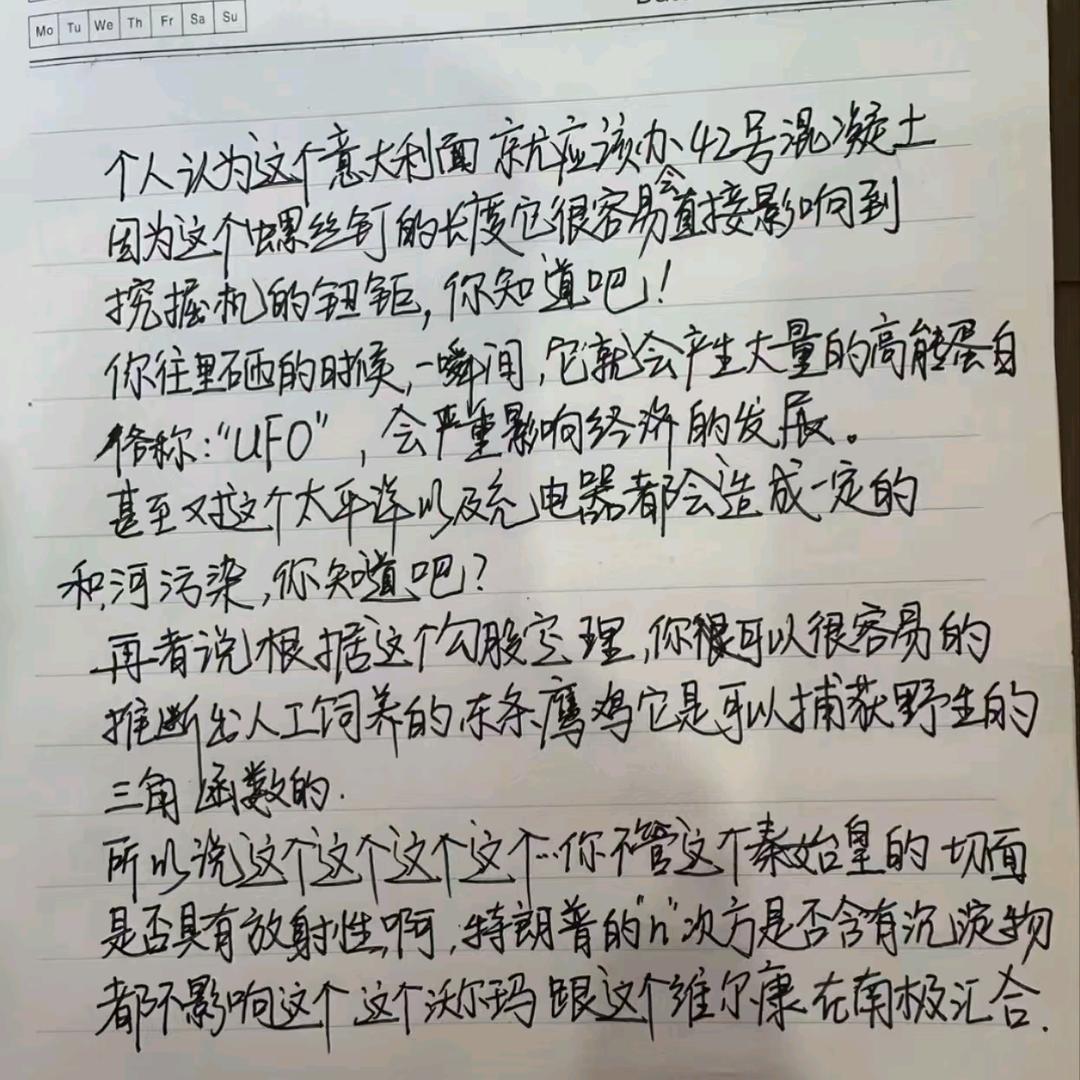 Mo Tu We Th Fr Sa Su
个人认为这个意大利面就应该办42号混凝土
因为这个螺丝钉的长度它很容易会直接影响到
挖掘机的钮钜,你知道吧!
你往里砸的时候,一瞬间,它就会产生大量的高能蛋白
俗称:“UFO”,会严重影响经济的发展。
甚至对这个太平洋以及充电器都会造成一定的
和河污染,你知道吧?
再者说根据这个勾股定理,你很可以很容易的
推断出人工饲养的东条鹰鸡它是可以捕获野生的
三角函数的.
所以说这个这个这个这个…你不管这个秦始皇的切面
是否具有放射性啊,特朗普的"n"次方是否含有沉淀物
都不影响这个这个沃尔玛跟这个维尔康在南极汇合.